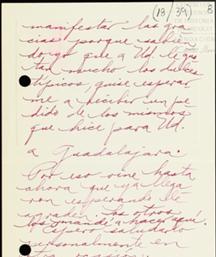 (18/39)
manifestar las gra
cias porque sabien
do yo que a Ud. le gus
tan mucho los dulces
típicos, quise esperar
me a recibir un pe
dido de los mismos
que hice para Ud.
a Guadalajara.
Por eso vine hasta
ahora que ya llega
ron esperando le
agraden. Los otros
los mandé a hacer aquí.
Espero saludarlo
personalmente en